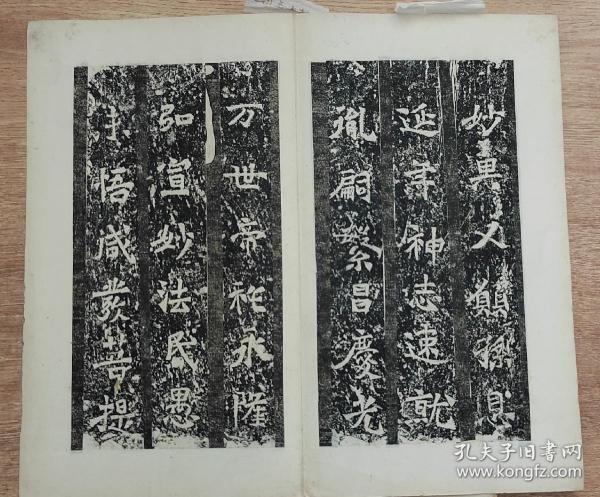 妙果又願孫息
延年神志速就
胤嗣繁昌慶光
万世帝祚永隆
弘宣妙法民愚
未悟咸發菩提
孔夫子旧书网
www.kongfz.com